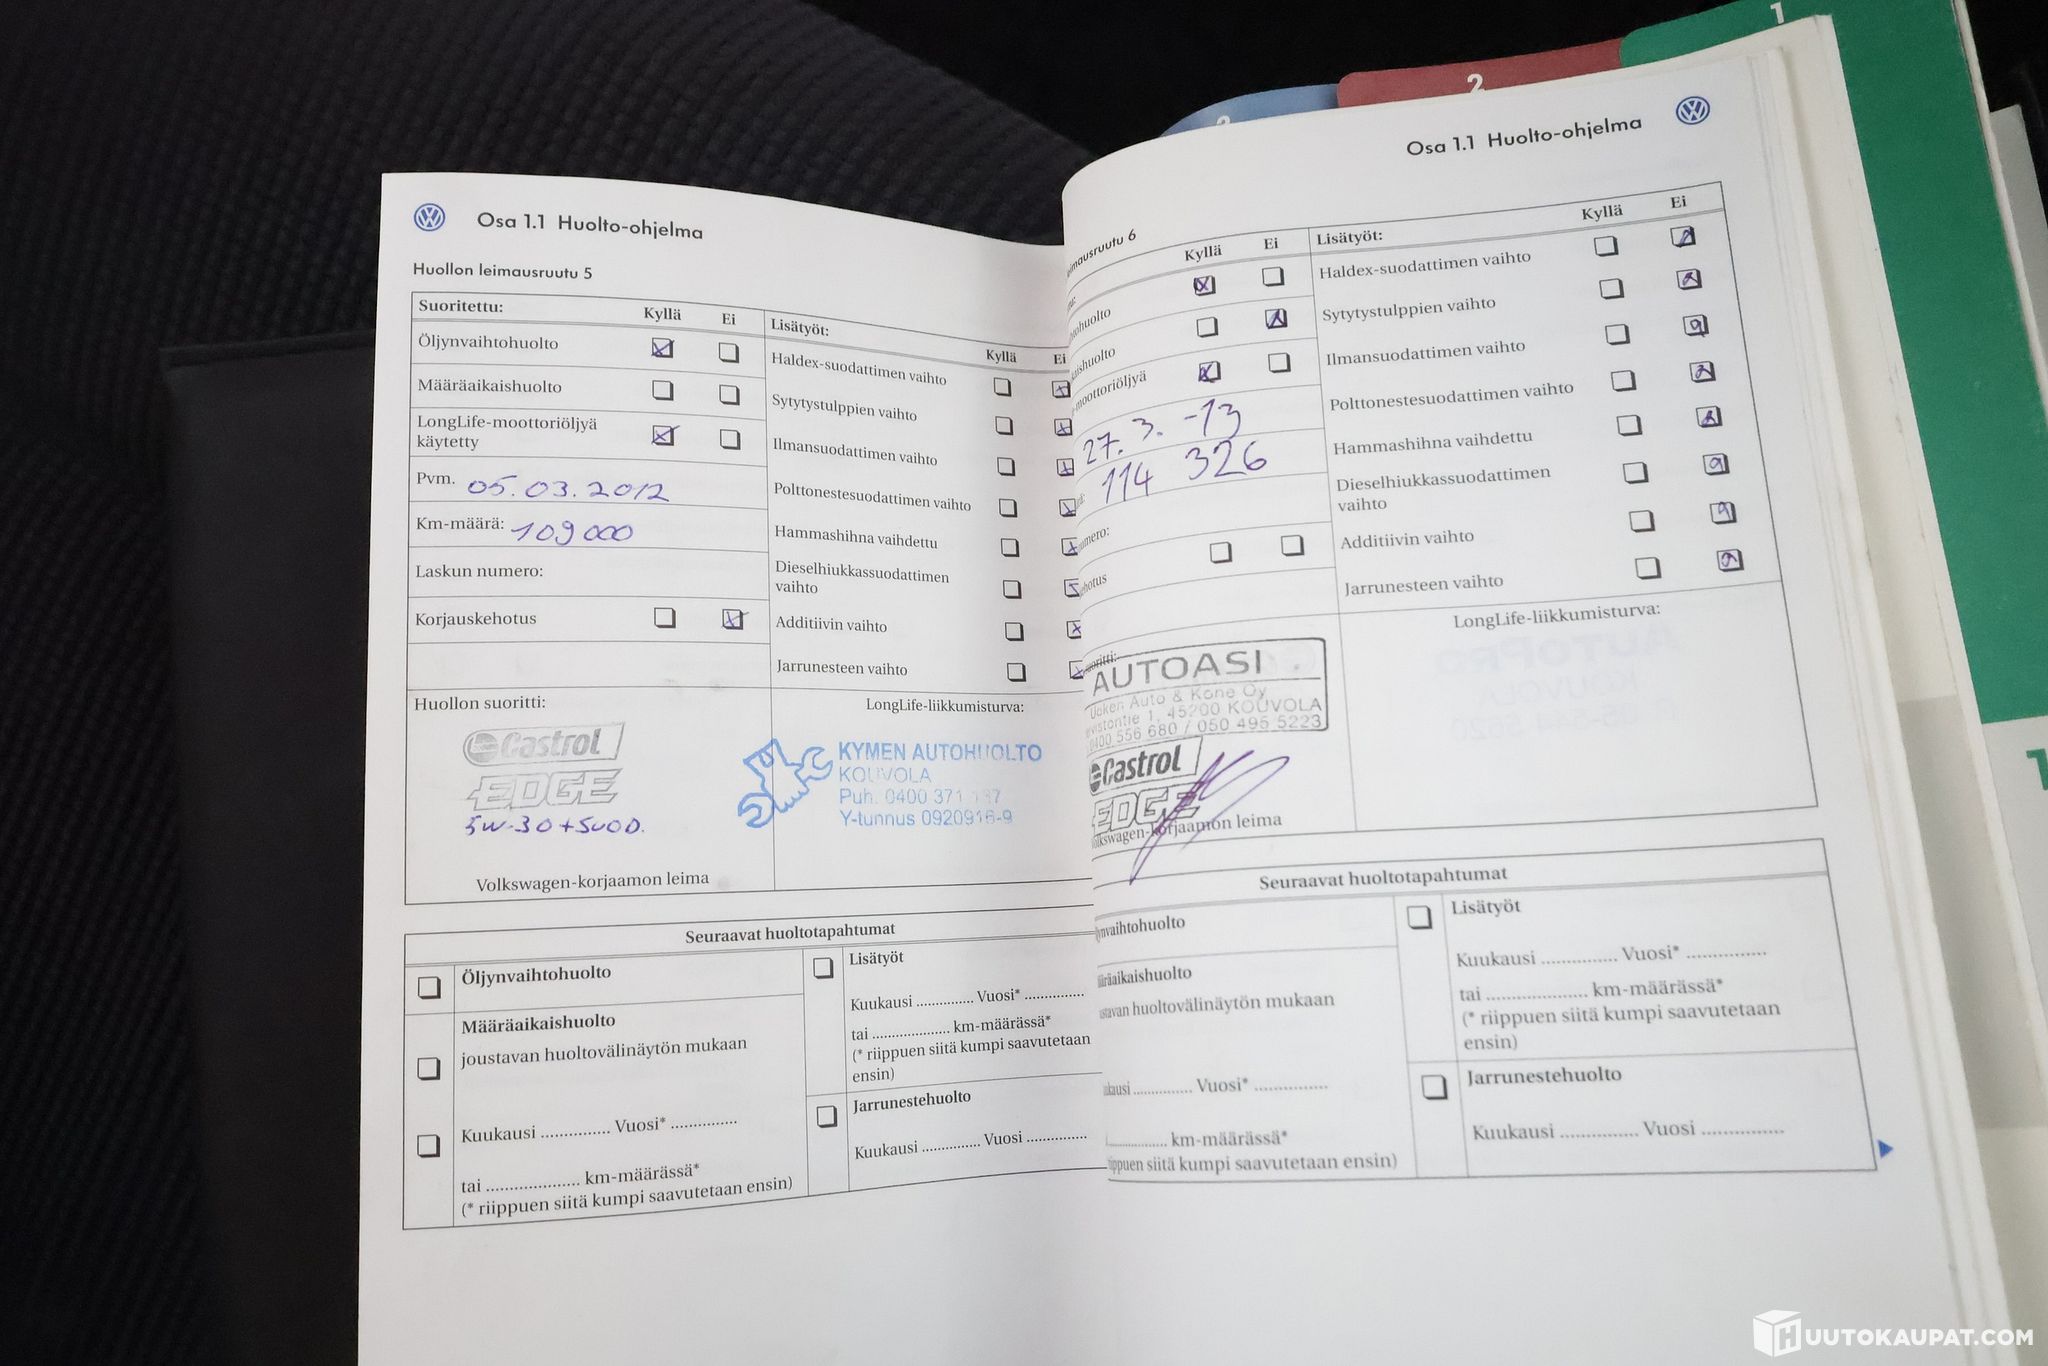 1
2
Osa 1.1 Huolto-ohjelma
Huollon leimausruutu 5
Suoritettu: Kyllä Ei
Öljynvaihtohuolto
Määräaikaishuolto
LongLife-moottoriöljyä
käytetty
Pvm. 05.03.2012
Km-määrä: 109000
Laskun numero:
Korjauskehotus
Lisätyöt:
Kyllä Ei
Haldex-suodattimen vaihto
Sytytystulppien vaihto
Ilmansuodattimen vaihto
Polttonestesuodattimen vaihto
Hammashihna vaihdettu
Dieselhiukkassuodattimen
vaihto
Additiivin vaihto
Jarrunesteen vaihto
Huollon suoritti:
Castrol
EDGE
5W-30+SUOD.
Volkswagen-korjaamon leima
LongLife-liikkumisturva:
KYMEN AUTOHUOLTO
KOUVOLA
Puh. 0400 371
Y-tunnus 0920916-9
Seuraavat huoltotapahtumat
Öljynvaihtohuolto
Määräaikaishuolto
joustavan huoltovälinäytön mukaan
Kuukausi .............. Vuosi* ..............
tai .................... km-määrässä*
(* riippuen siitä kumpi saavutetaan ensin)
Lisätyöt
Kuukausi .............. Vuosi* ..............
tai .................... km-määrässä*
(* riippuen siitä kumpi saavutetaan
ensin)
Jarrunestehuolto
Kuukausi .............. Vuosi ..............
Osa 1.1 Huolto-ohjelma
6
Kyllä Ei
-moottoriöljyä
27.3.-13
114 326
Lisätyöt:
Kyllä Ei
Haldex-suodattimen vaihto
Sytytystulppien vaihto
Ilmansuodattimen vaihto
Polttonestesuodattimen vaihto
Hammashihna vaihdettu
Dieselhiukkassuodattimen
vaihto
Additiivin vaihto
Jarrunesteen vaihto
AUTOASI
Auto & Kone Oy
1, 45200 KOUVOLA
0400 556 680 / 050 495 5223
Castrol
EDGE
Volkswagen-korjaamon leima
LongLife-liikkumisturva:
Seuraavat huoltotapahtumat
huoltovälinäytön mukaan
.............. Vuosi* ..............
.............. km-määrässä*
siitä kumpi saavutetaan ensin)
Lisätyöt
Kuukausi .............. Vuosi* ..............
tai .................... km-määrässä*
(* riippuen siitä kumpi saavutetaan
ensin)
Jarrunestehuolto
Kuukausi .............. Vuosi ..............
1
HUUTOKAUPAT.COM